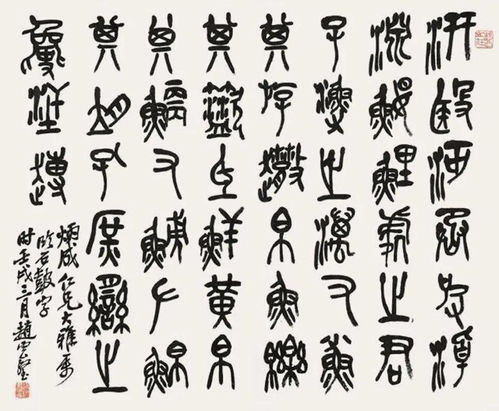 汧殹沔丞皮淖
淵鰋鯉處之君
子漁之澫又鯊
其斿趩帛魚皪
其籃氐鮮黃帛
其鯿又鮊
其胡孔庶臠之
炳成仁兄大雅屬
臨石鼓字
時壬戌三月趙雲壑